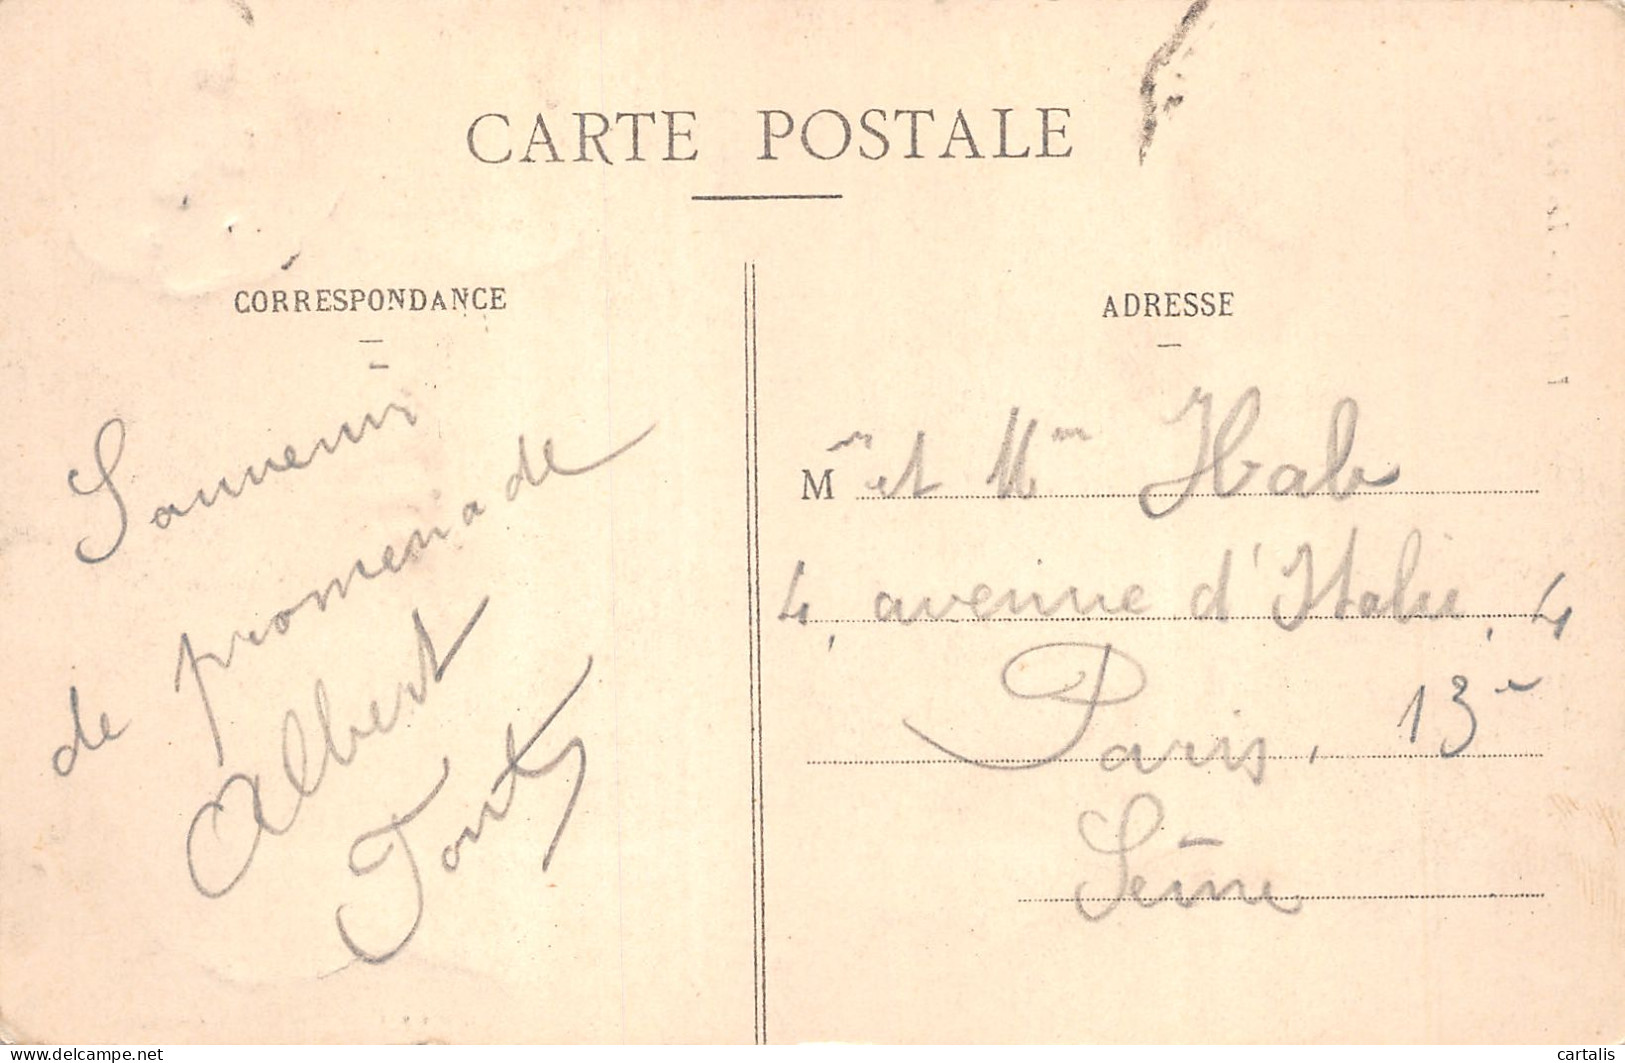 CARTE POSTALE
CORRESPONDANCE
Souvenir
de promenade
Albert
ADRESSE
Mr et Mme Hab
4, avenue d'Italie, 4
Paris, 13e
Seine
www.delcampe.net
cartalis